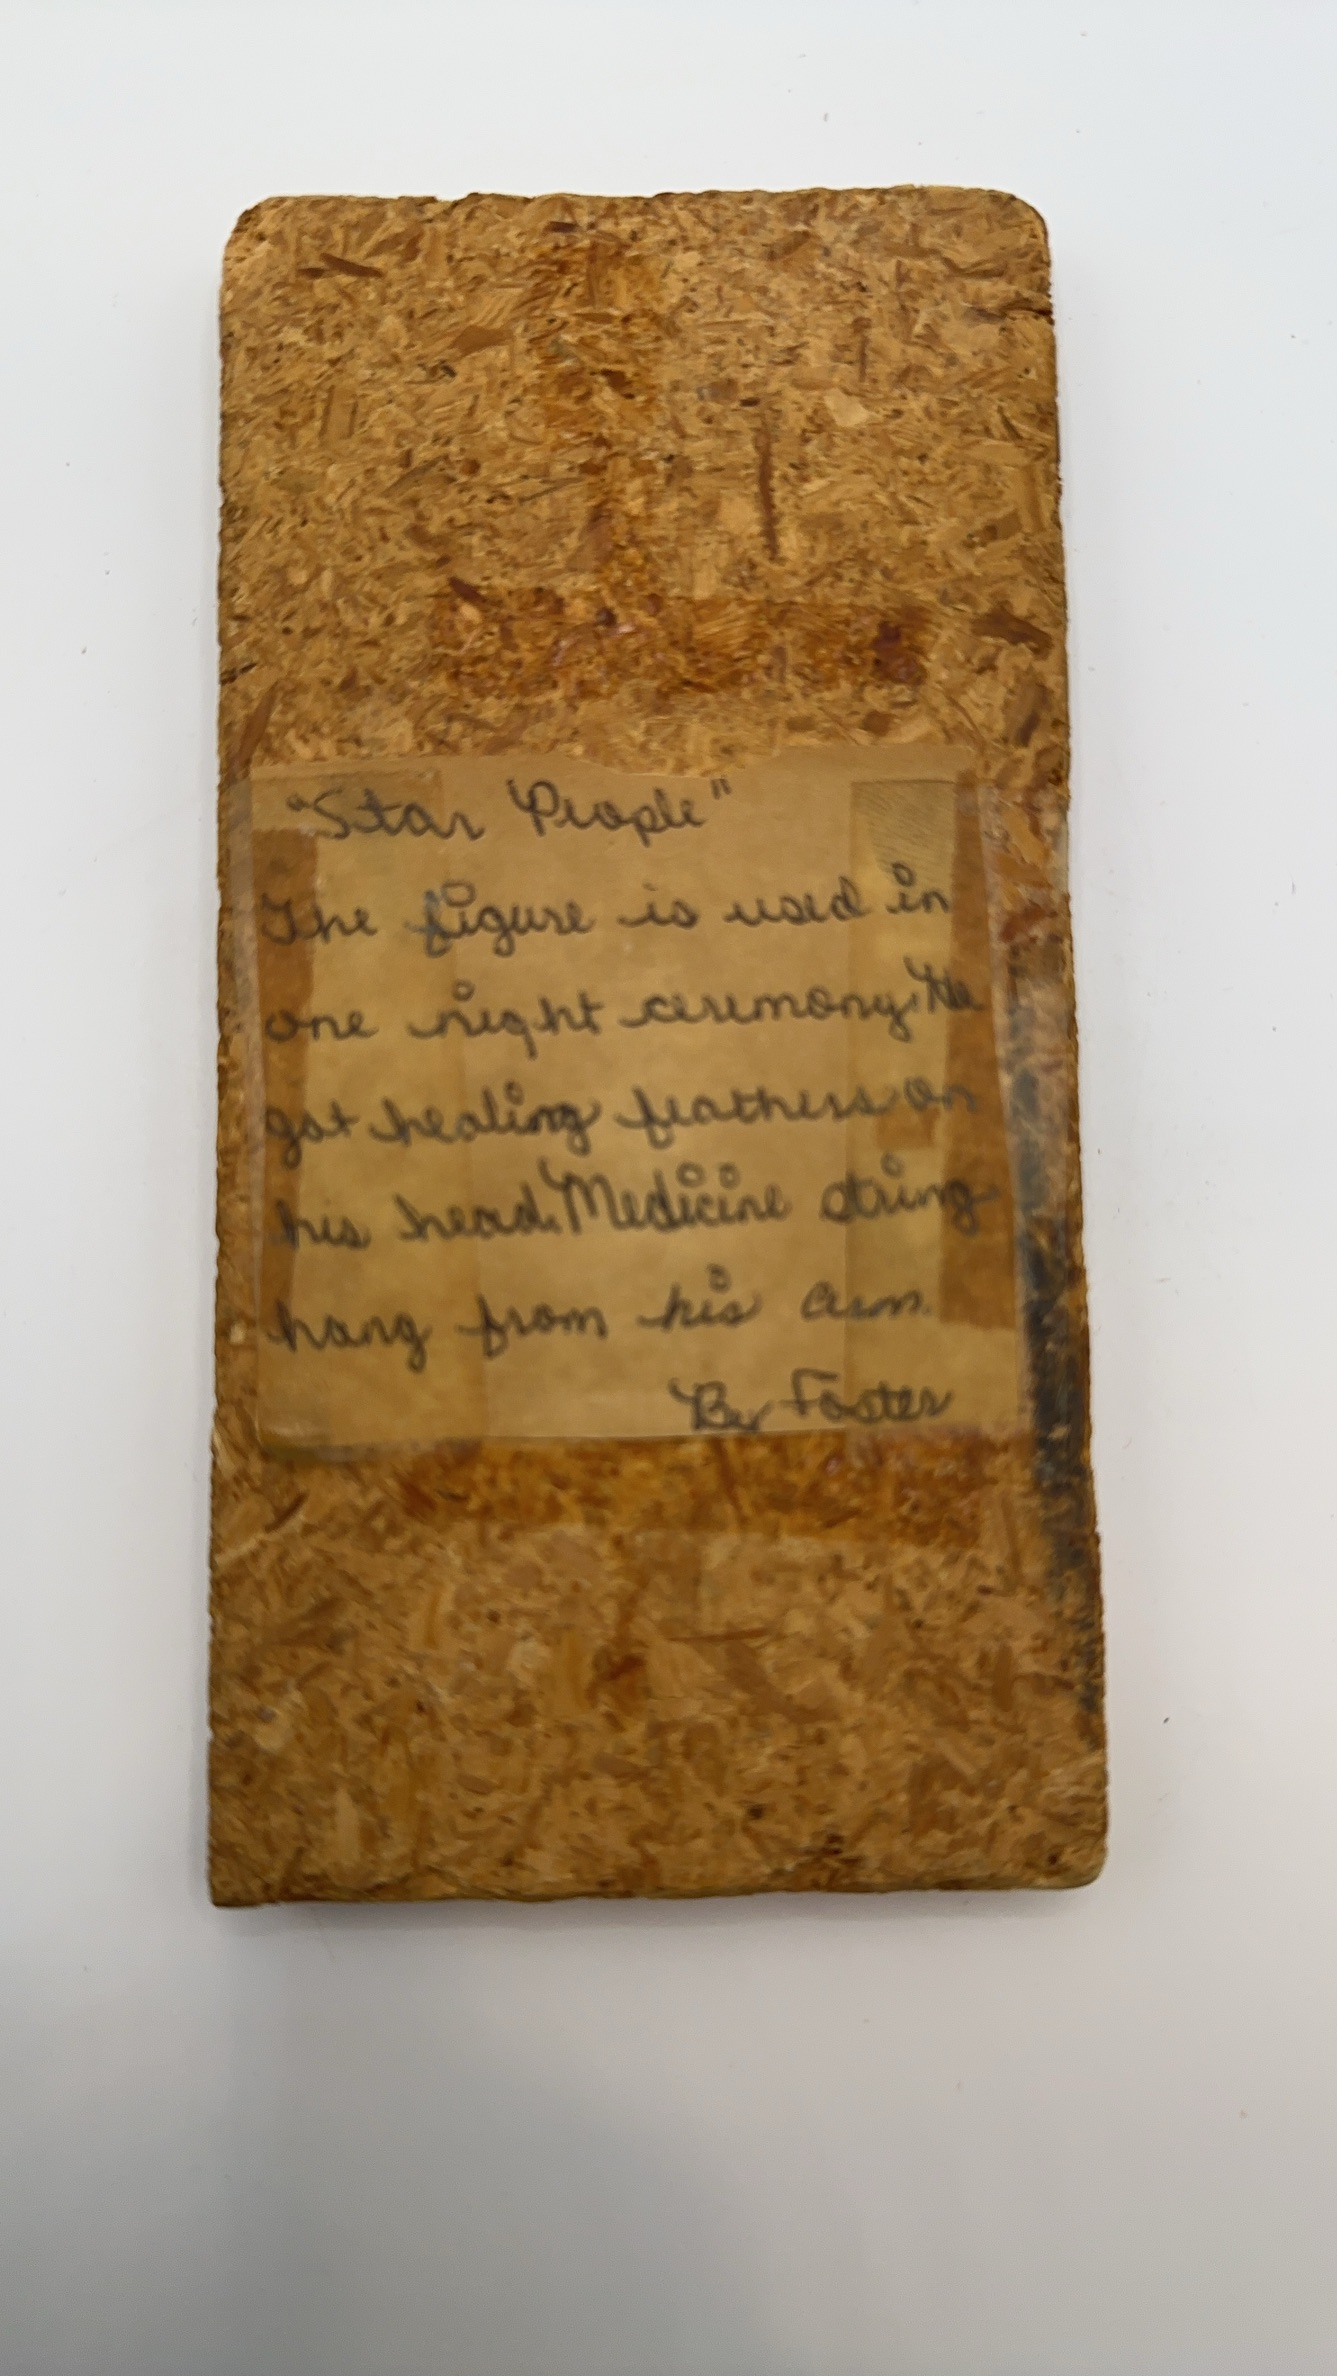 "Star People"
The figure is used in
one night ceremony. He
got healing feathers on
his head. Medicine string
hang from his arm.
By Foster